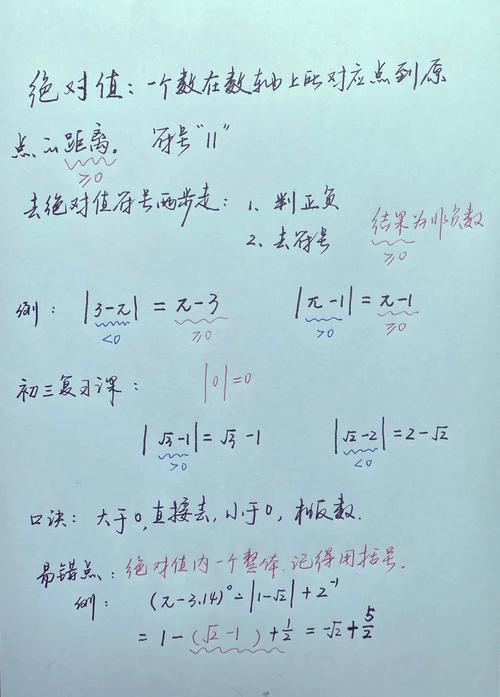 绝对值：一个数在数轴上所对应点到原
点的距离。 符号"||"
≥0
去绝对值符号两步走：1、判正负
2、去符号
结果为非负数
≥0
例： |3-π| = π-3 |π-1| = π-1
<0 ≥0 >0 ≥0
初三复习课： |0|=0
|√3-1|=√3-1 |√2-2|=2-√2
>0 <0
口诀：大于0,直接去,小于0,相反数.
易错点：绝对值内一个整体.记得用括号.
例： (π-3.14)⁰-|1-√2|+2⁻¹
= 1-(√2-1)+1/2 = -√2+5/2